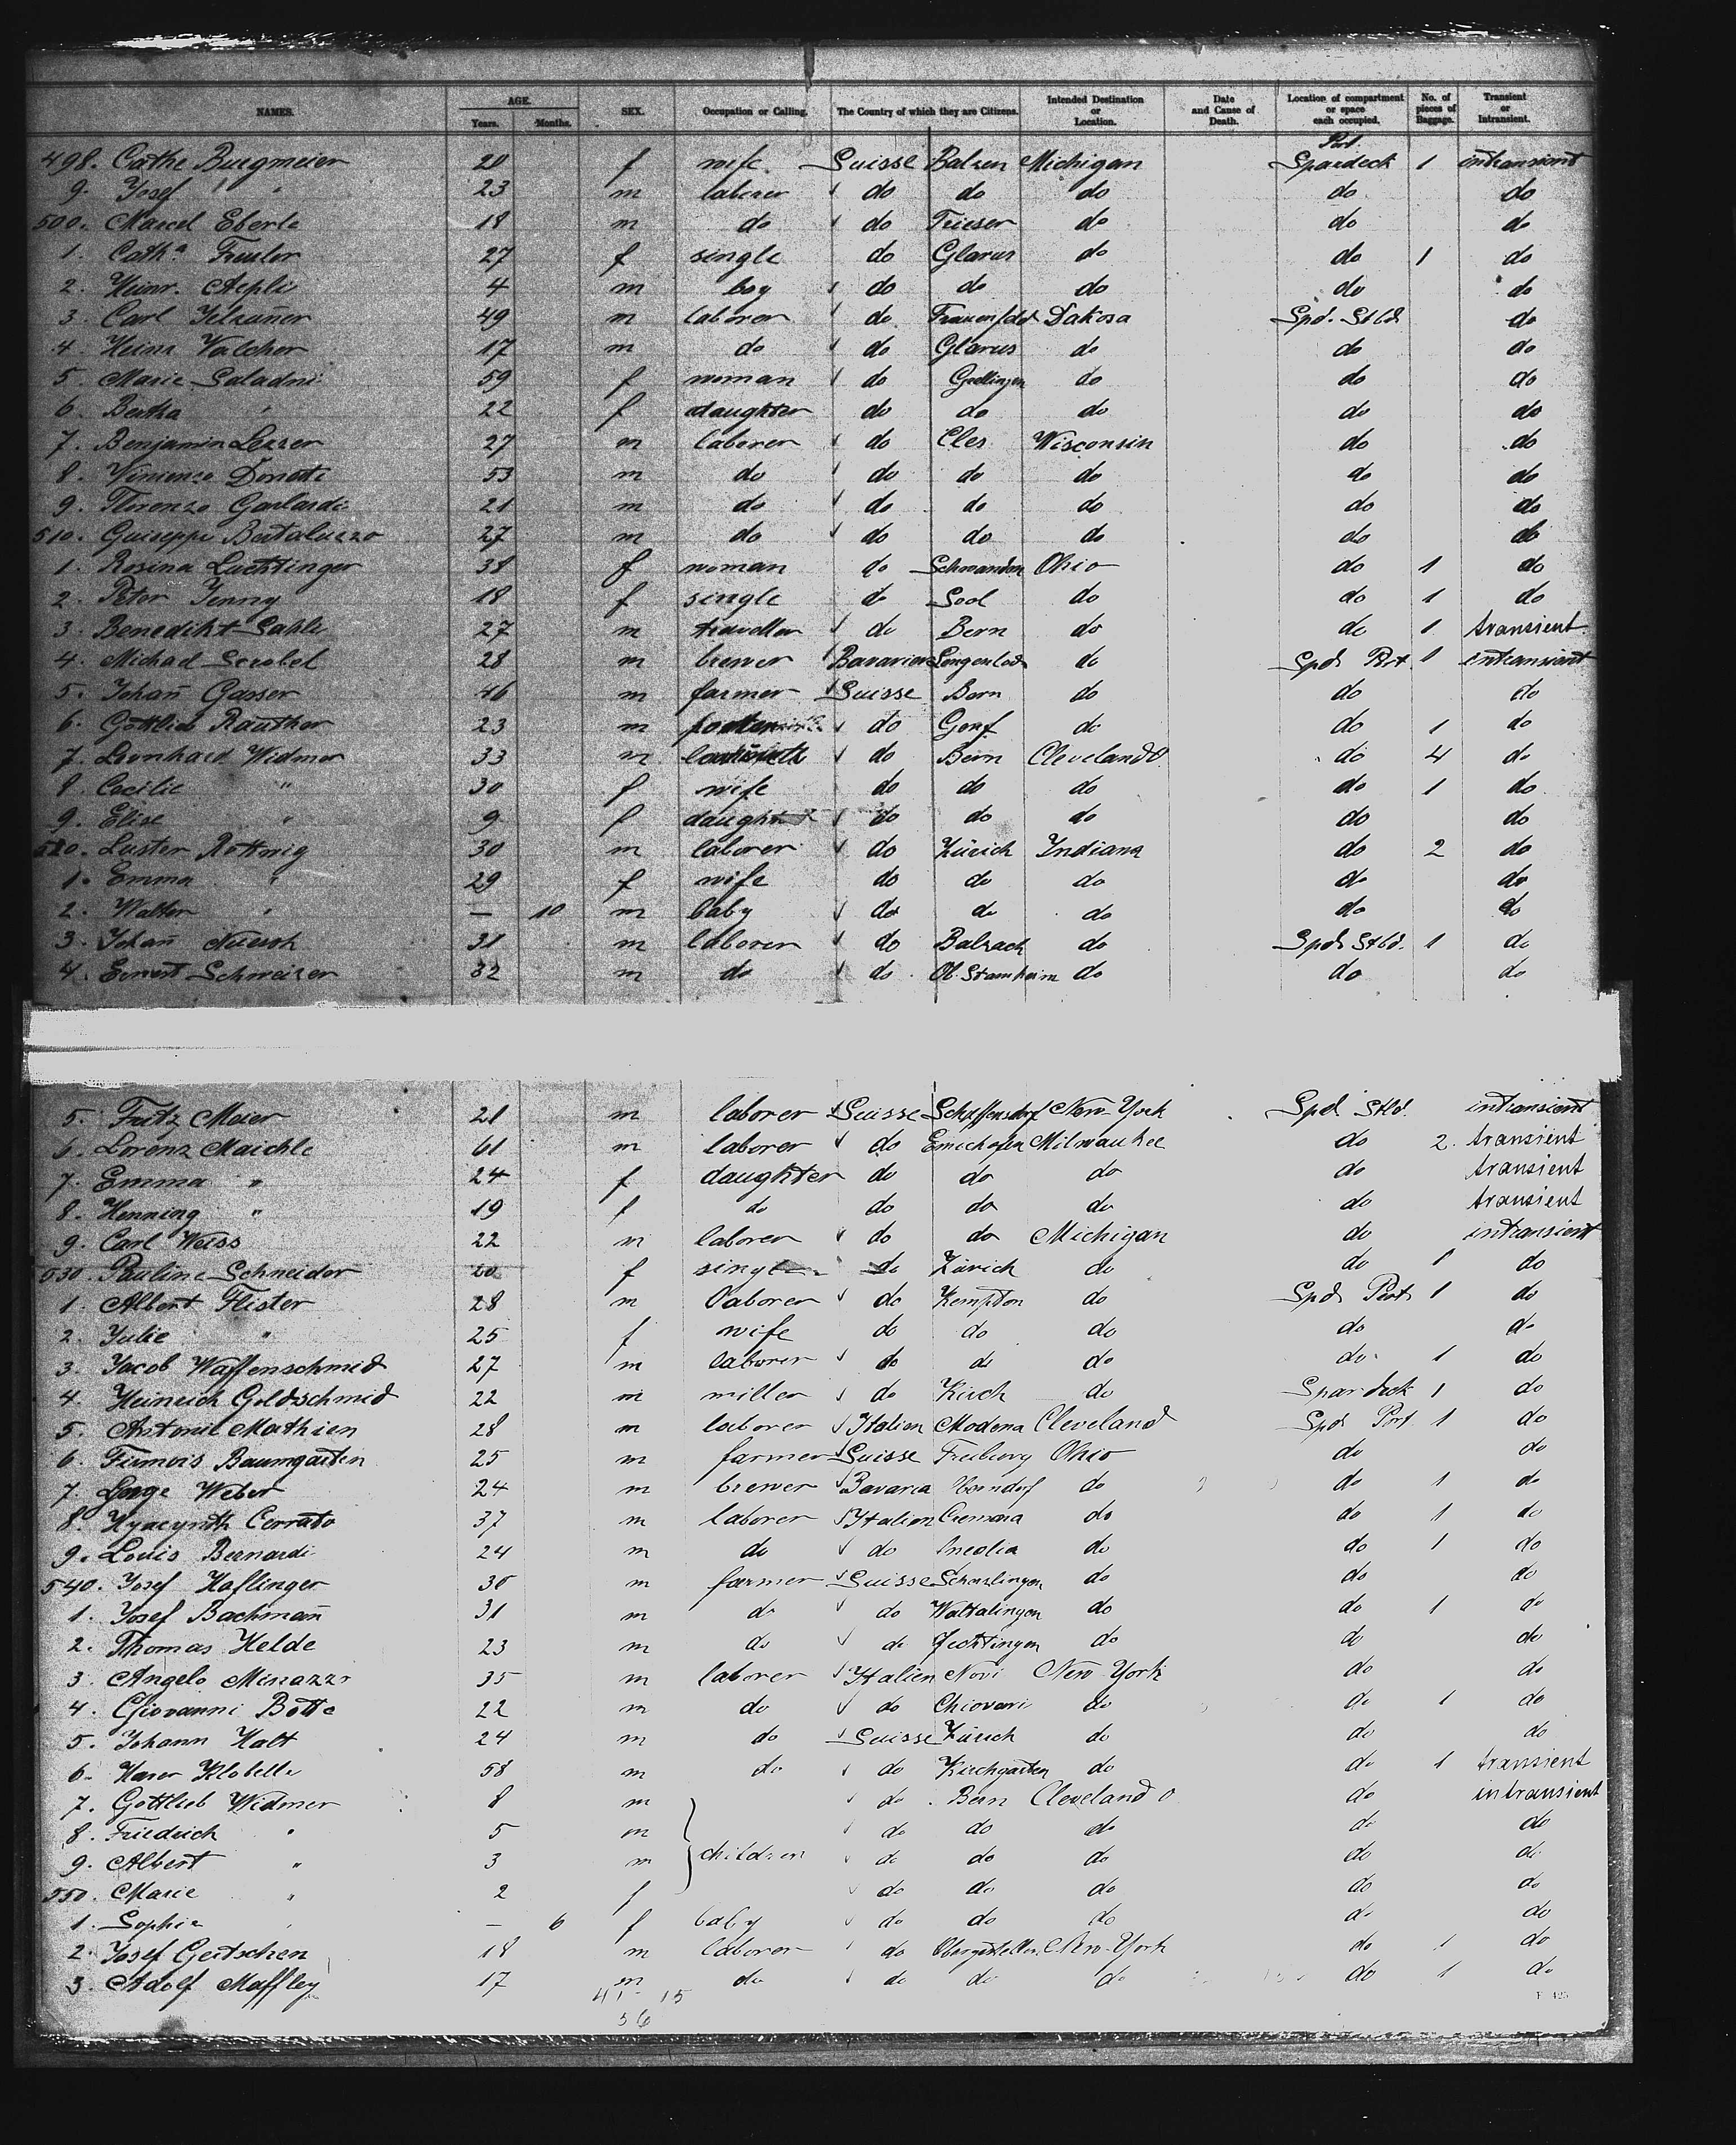 NAMES. AGE. Years. Months. SEX. Occupation or Calling. The Country of which they are Citizens. Intended Destination or Location. Date and Cause of Death. Location of compartment or space each occupied. No. of pieces of Baggage. Transient or Intransient.
498. Cathe Burgmeier 20 f wife Suisse Balzen Michigan Port. Spardeck 1 intransient
9. Josef " 23 m laborer do do do do do
500. Marcel Eberle 18 m do do Trieser do do do
1. Cath.a Freuler 27 f single do Glarus do do 1 do
2. Heinr. Aepli 4 m boy do do do do do
3. Carl 49 m laborer do Frauenfeld Dakosa Spd. Stbd do
4. Heinr Walcher 17 m do do Glarus do do do
5. Marie Saladin 59 f woman do Grellingen do do do
6. Bertha " 22 f daughter do do do do do
7. Benjamin Lexzer 27 m laborer do Cles Wisconsin do do
8. Vincenzo Donatti 53 m do do do do do do
9. Florenzo Garlardi 21 m do do do do do do
510. Guiseppe Bertaluzzo 27 m do do do do do do
1. Rosina Luchtinger 38 f woman do Schwanden Ohio do 1 do
2. Peter Jenny 18 f single do Sool do do 1 do
3. Benedikt Sahli 27 m traveller do Bern do do 1 transient
4. Michael 28 m brewer Bavarien Lengenlod do Spd. Port 1 intransient
5. Johañ Gasser 46 m farmer Suisse Bern do do do
6. Gottlieb Rauther 23 m do Genf do do 1 do
7. Leonhard Widmer 33 m do Bern Cleveland O do 4 do
8. Cecilie " 30 f wife do do do do 1 do
9. Elise " 9 f daught do do do do do
520. Luster Rottnig 30 m laborer do Zürich Indiana do 2 do
1. Emma " 29 f wife do do do do do
2. Walter " — 10 m baby do do do do do
3. Johañ Nüesch 31 m laborer do Balzach do Spd. Stbd. 1 do
4. Ernest Schweizer 32 m do do Ob. Stamheim do do do
5. Fritz Meier 21 m laborer Suisse Scheffensdorf New-York Spd Stbd. intransient
6. Lorenz Maichle 61 m laborer do Emishofen Milwaukee do 2. transient
7. Emma " 24 f daughter do do do do transient
8. Henning " 19 f do do do do do transient
9. Carl Weiss 22 m laborer do do Michigan do intransient
530. Pauline Schneider 20 f single do Zürich do do 1 do
1. Albert Flister 28 m laborer do Kempton do Spd. Port 1 do
2. Julie " 25 f wife do do do do do
3. Jacob Waffenschmid 27 m laborer do do do do 1 do
4. Heinrich Goldschmid 22 m miller do Zürch do Spardeck 1 do
5. Antonie Mathien 28 m laborer Italien Modena Cleveland Spd Port 1 do
6. Baumgarten 25 m farmer Suisse Freiburg Ohio do do
7. George Weber 24 m brewer Bavaria do do 1 do
8. Hyacynth Cerrato 37 m laborer Italien Cremona do do 1 do
9. Louis Bernardi 24 m do do do do 1 do
540. Josef Haflinger 30 m farmer Suisse do do do
1. Josef Bachmañ 31 m do do Waltalingen do do 1 do
2. Thomas Helde 23 m do do Jechtingen do do do
3. Angelo Minazzi 35 m laborer Italien Novi New-York do do
4. Giovanni Botte 22 m do do Chiovari do do 1 do
5. Johann Halt 24 m do Suisse Zürich do do do
6. Klobelle 58 m do do Kirchgarten do do 1 transient
7. Gottlieb Widmer 8 m do Bern Cleveland O do intransient
8. Friedrich " 5 m do do do do do
9. Albert " 3 m children do do do do do
550. Marie " 2 f do do do do do
1. Sophie " — 6 f baby do do do do do
2. Josef Gertschen 18 m laborer do Obergestellen New-York do 1 do
3. Adolf Maffley 17 m do do do do do 1 do
41 - 15
56